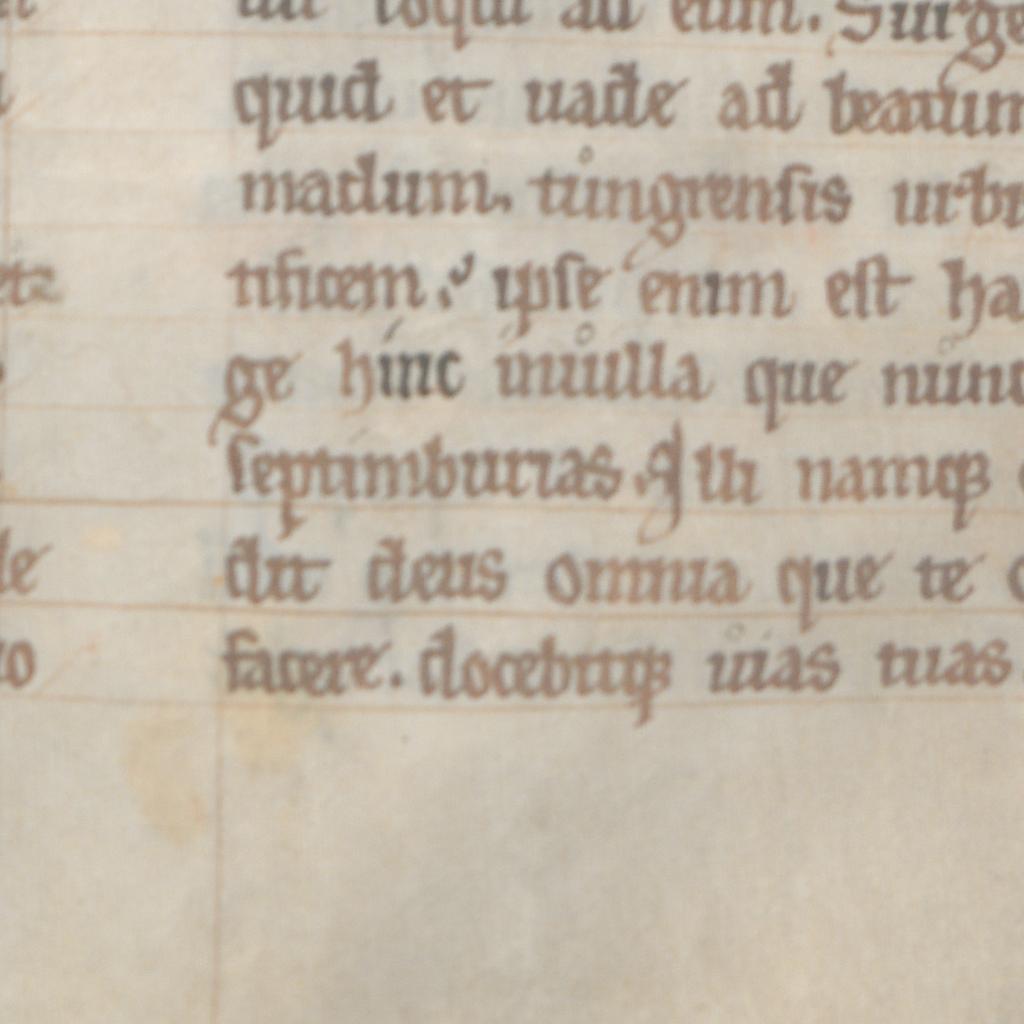 loqui ad eum. Surge
quid et uade ad beatum
madum. tungrensis urbi
tificem. ipse enim est ha
ge hinc in uilla que nunc
septimburias. Illi namq;
dit deus omnia que te
facere. docebitq; uias tuas